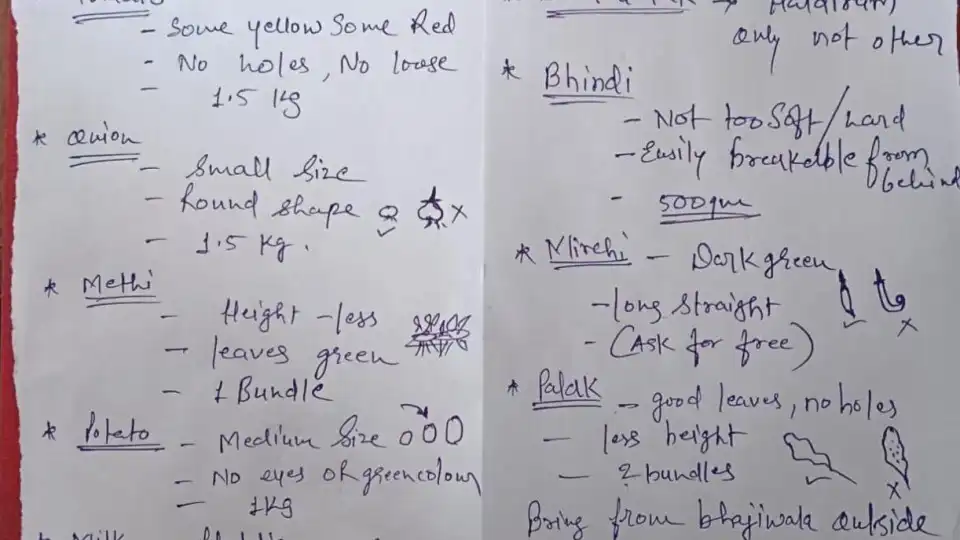 - Some yellow Some Red
- No holes, No loose
- 1.5 Kg
* Onion
- Small Size
- Round shape
- 1.5 Kg.
* Methi
- Height - less
- leaves green
- 1 Bundle
* Potato - Medium Size
- No eyes or green colour
- 1Kg
* Milk
Only not other
* Bhindi
- Not too Soft/hard
- Easily breakelble from behind
- 500gm
* Mirchi - Dark green
- long straight
- (Ask for free)
* Palak - good leaves, no holes
- less height
- 2 bundles
Bring from bhajiwala outside